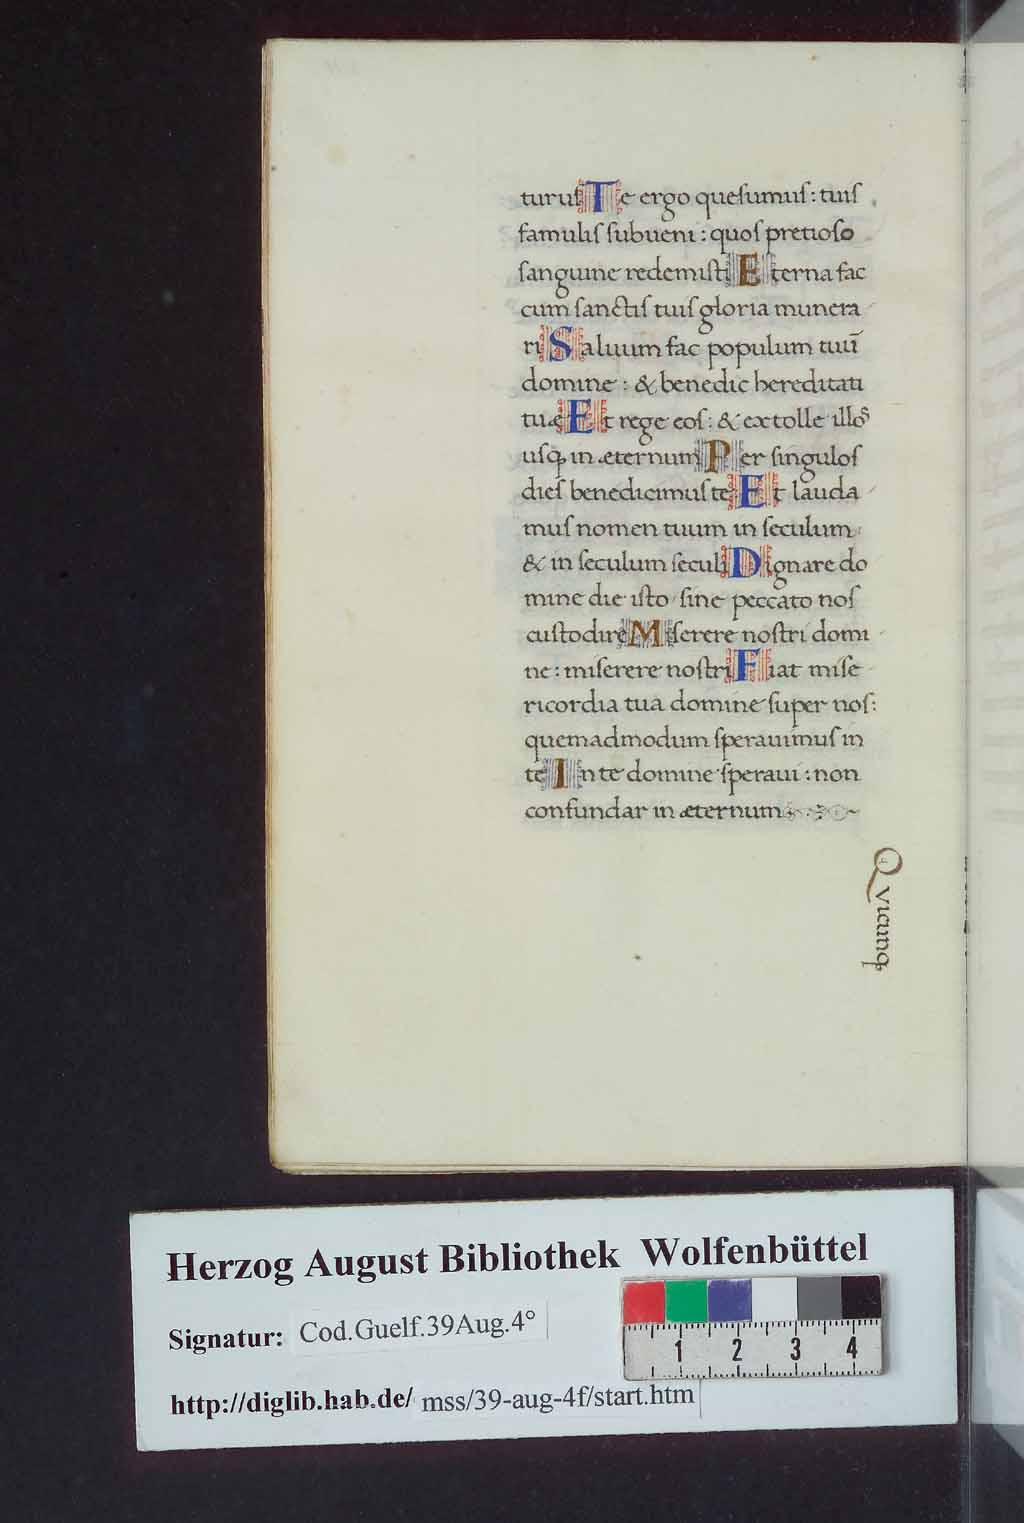 turuſ Te ergo queſumuſ: tuiſ
famuliſ ſubueni: quoſ pretioſo
ſanguine redemiſti Eterna fac
cum ſanctiſ tuiſ gloria munera
ri Saluum fac populum tuū
domine: & benedic hereditati
tuæ Et rege eoſ: & extolle illoſ
uſq; in æternum Per ſinguloſ
dieſ benedicimuſ te Et lauda
muſ nomen tuum in ſeculum:
& in ſeculum ſeculi Dignare do
mine die iſto ſine peccato noſ
cuſtodire Miſerere noſtri domi
ne: miſerere noſtri Fiat miſe
ricordia tua domine ſuper noſ:
quemadmodum ſperauimuſ in
te In te domine ſperaui: non
confundar in æternum
Quicunq;
Herzog August Bibliothek Wolfenbüttel
Signatur: Cod.Guelf.39Aug.4°
http://diglib.hab.de/ mss/39-aug-4f/start.htm
1 2 3 4